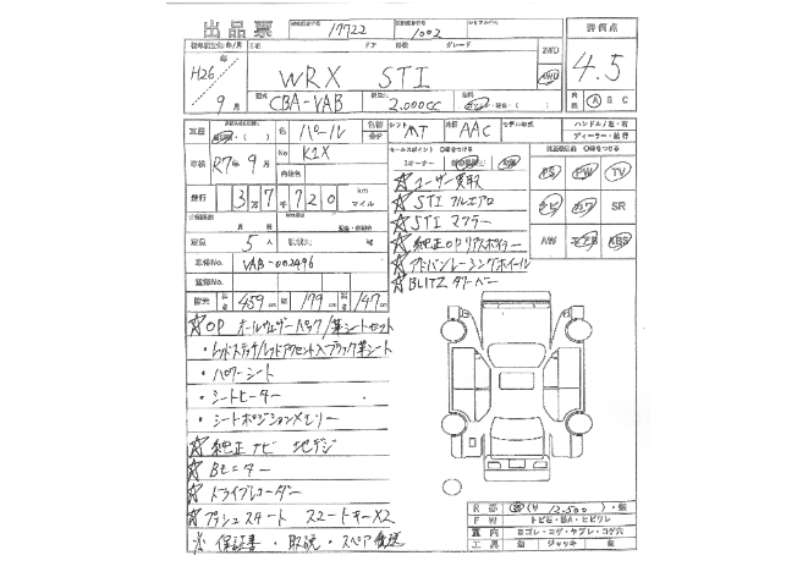 出品票 17722 1002
評価点
年/月 車名 ドア 形状 グレード
H26年 9月
WRX STI
4WD
4.5
CBA-VAB 2,000cc
A B C
パール
MT AAC
ハンドル/左・右
ディーラー・並行
車検 R7年9月 No K1X
内装色
セールスポイント
1オーナー
PS PW TV
走行 3万7千720 km マイル
SR
AW ABS
☆ユーザー買取
☆STI フルエアロ
☆STI マフラー
☆純正OPリアスポイラー
☆アドバンレーシングホイール
☆BLITZ タワーバー
定員 5人 kg
車体No. VAB-002496
登録No.
459 cm 179 cm 147 cm
☆OP オールウェザーパック/革シートセット
・レッドステッチ/レッドアクセント入ブラック革シート
・パワーシート
・シートヒーター
・シートポジションメモリー
☆純正ナビ 地デジ
☆Bモニター
☆ドライブレコーダー
☆プッシュスタート スマートキーX2
※保証書・取説・スペア
R 券 12,500
FW トビ石・ヒビワレ
室内 ヨゴレ・コゲ・ヤブレ・コゲ穴
工具 ジャッキ